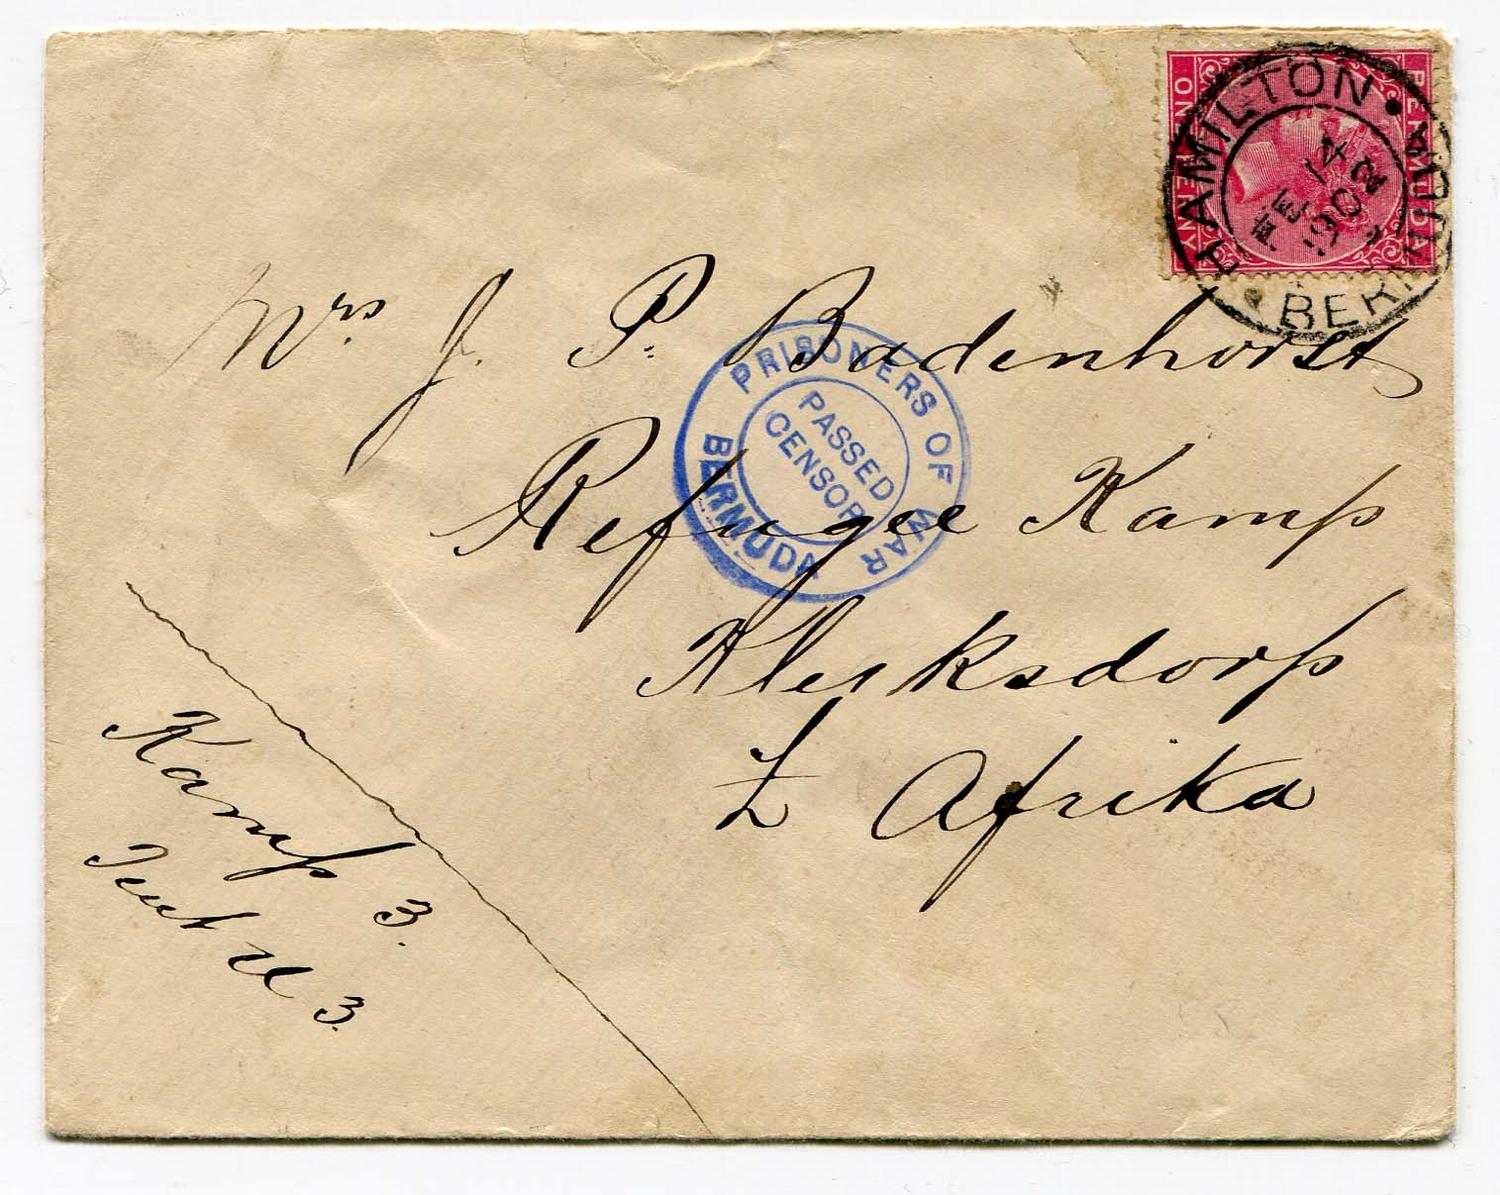 BERMUDA
ONE PENNY
HAMILTON
BERMUDA
FE 14
1902
Mrs J. P. Badenhorst
PRISONERS OF WAR
PASSED
CENSOR
BERMUDA
Refugee Kamp
Klerksdorp
Z Afrika
Kamp 3.
Tent 3.